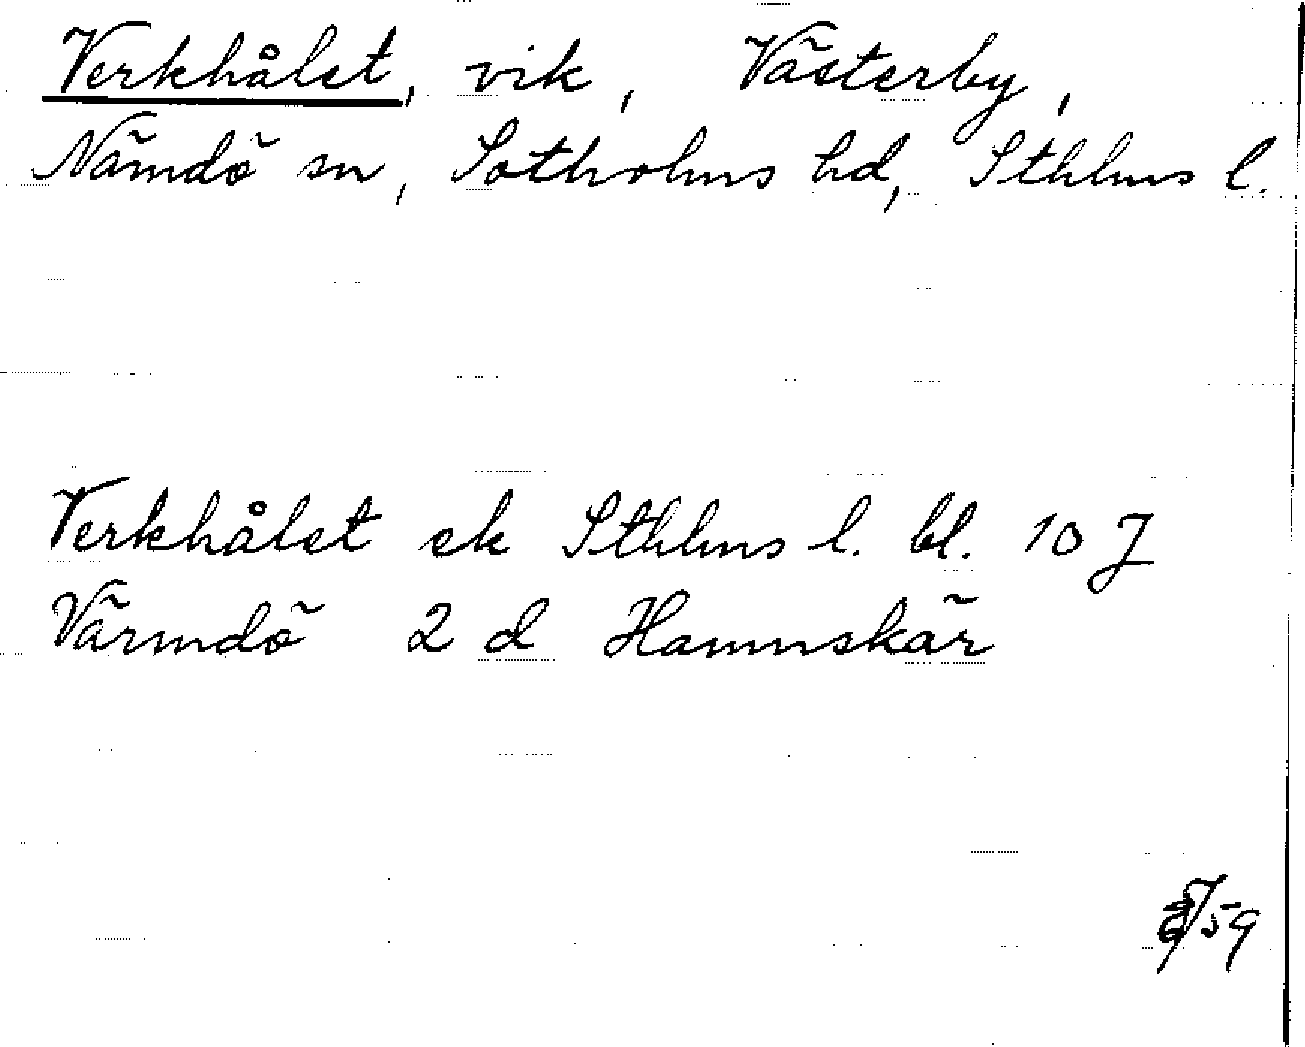 Verkhålet, vik, Västerby,
Nämdö sn, Sotholms hd, Sthlms l.
Verkhålet ek Sthlms l. bl. 10 J
Värmdö 2 d Hamnskär
59